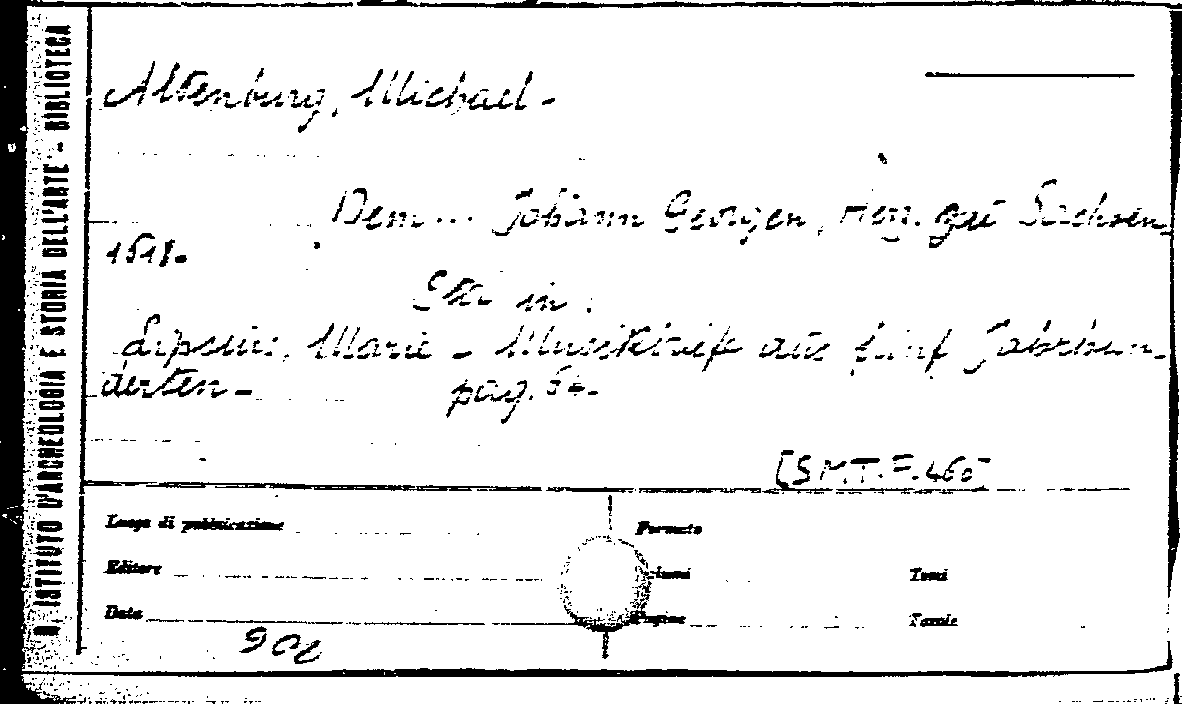 R. ISTITUTO D'ARCHEOLOGIA E STORIA DELL'ARTE - BIBLIOTECA
Altenburg, Michael -
Dem ... Johann Georgen, Herz. zu Sachsen,
1618.
Sta in:
Lipsius, Marie - Musikbriefe aus fünf Jahrhun-
derten - pag.
[S.M.T.F.460]
Luogo di pubblicazione
Formato
Editore
Volumi
Tomi
Data
Pagine
Tavole